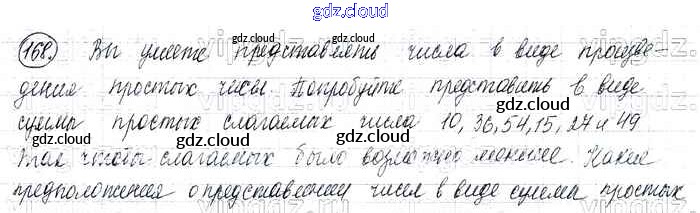 gdz.cloud
168. Вы умеете представлять числа в виде произве-
дения простых чисел. Попробуйте представить в виде
суммы простых слагаемых числа 10, 36, 54, 15, 27 и 49
так чтобы слагаемых было возможно меньше. Какие
предположения о представлении чисел в виде суммы простых